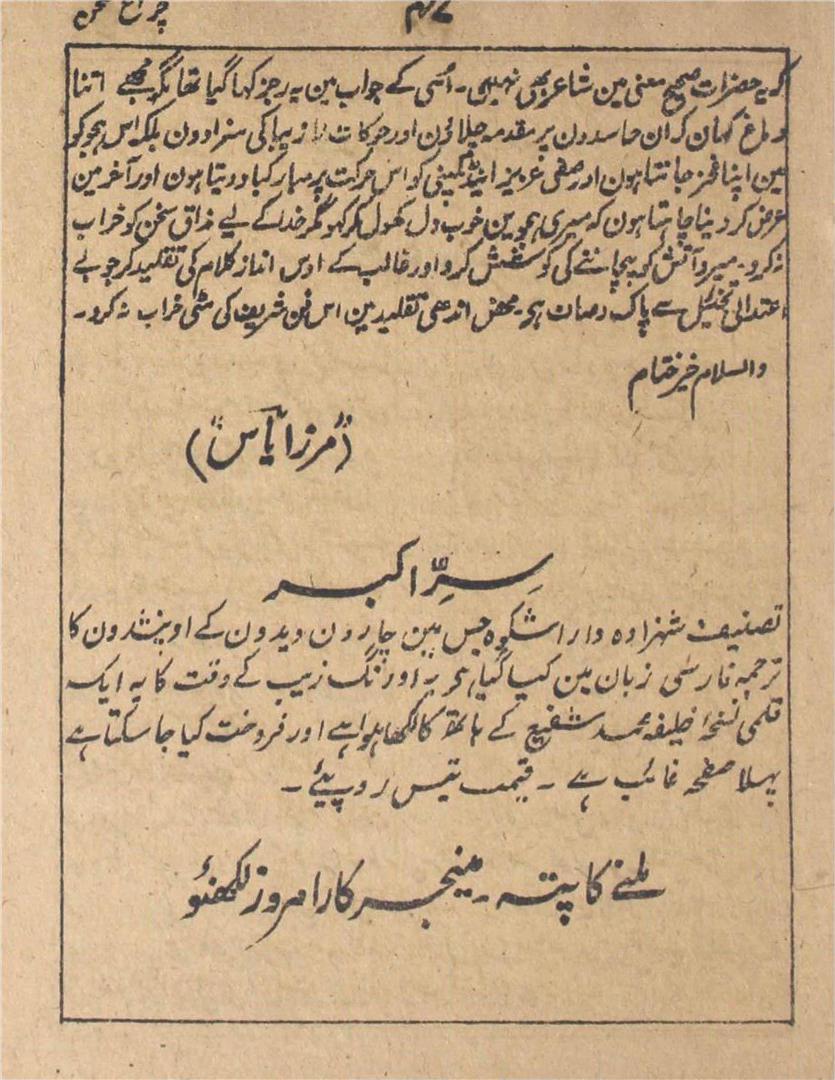 چراغ سخن
۴۷
کہ یہ حضرات صحیح معنی مین شاعر بھی نہیں۔ اُسی کے جواب مین یہ رجز کہا گیا تھا مگر مجھے اتنا
دماغ کہان کہ ان حاسدون پر مقدمہ چلاؤن اور حرکات نازیبا کی سزا دون بلکہ اس ہجو کو
مین اپنا فخر جانتا ہون اور صفی عزیز اینڈ کمپنی کو اس حرکت پر مبارکباد دیتا ہون اور آخر مین
عرض کر دینا چاہتا ہون کہ میری ہجو مین خوب دل کھول کر کہو مگر خدا کے لیے مذاق سخن کو خراب
نہ کرو۔ میر و آتش کو پہچاننے کی کوشش کرو اور غالب کے اوس انداز کلام کی تقلید کر جو بے
اعتدالی تخئیل سے پاک وصاف ہو۔ محض اندھی تقلید مین اس فن شریف کی مٹی خراب نہ کرو۔
والسلام خیر ختام
("مرزا یاس")
سِرِّ اکبر
تصنیف شہزادہ داراشکوہ جس مین چارون ویدون کے اوپنشدون کا
ترجمہ فارسی زبان مین کیا گیا ہے یہ اورنگ زیب کے وقت کا یہ ایک
قلمی نسخہ خلیفہ محمد شفیع کے ہاتھ کا لکھا ہوا ہے اور فروخت کیا جا سکتا ہے
پہلا صفحہ غائب ہے ۔ قیمت تیس روپیئے ۔
ملنے کا پتہ ۔ مینجر کار امروز لکھنؤ